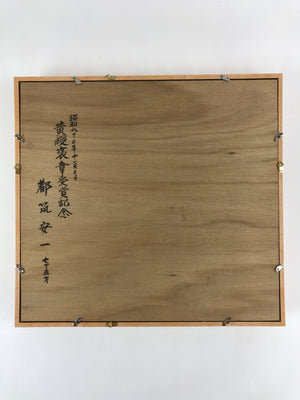 昭和五十三年十一月三日
黄綬褒章受賞記念
都筑安一 七十五才